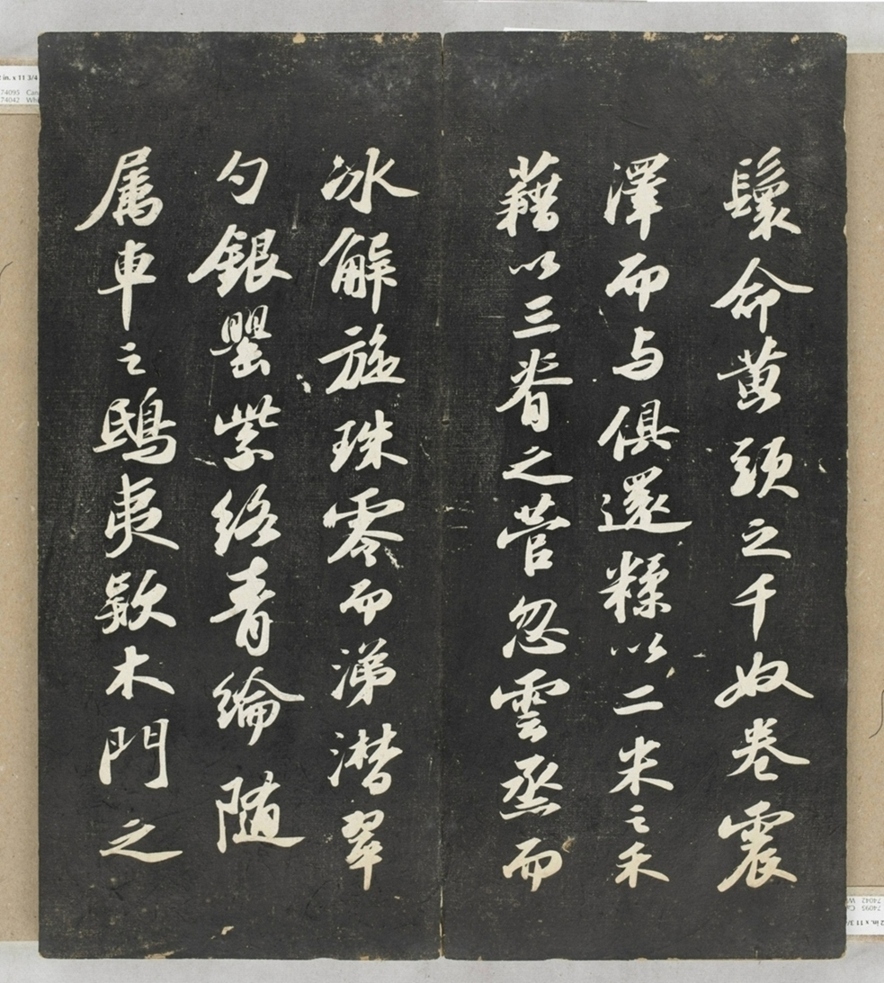 鬟命黄頭之千奴卷震
澤而与俱還糅以二米之禾
藉以三脊之菅忽雲烝而
冰解旋珠零而涕潸翠
勺銀罌紫絡青綸隨
属車之鴟夷款木門之